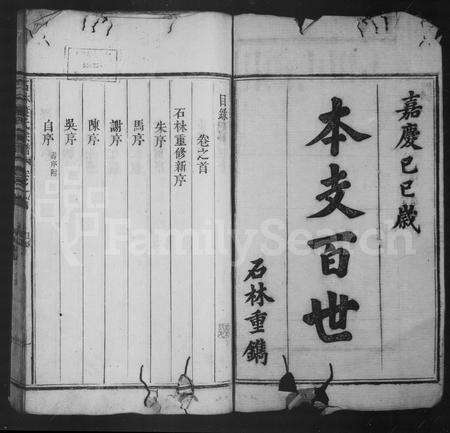 嘉慶己巳歲
本支百世
石林重鐫
目錄
卷之首
石林重修新序
朱序
馬序
謝序
陳序
吳序
自序
FamilySearch